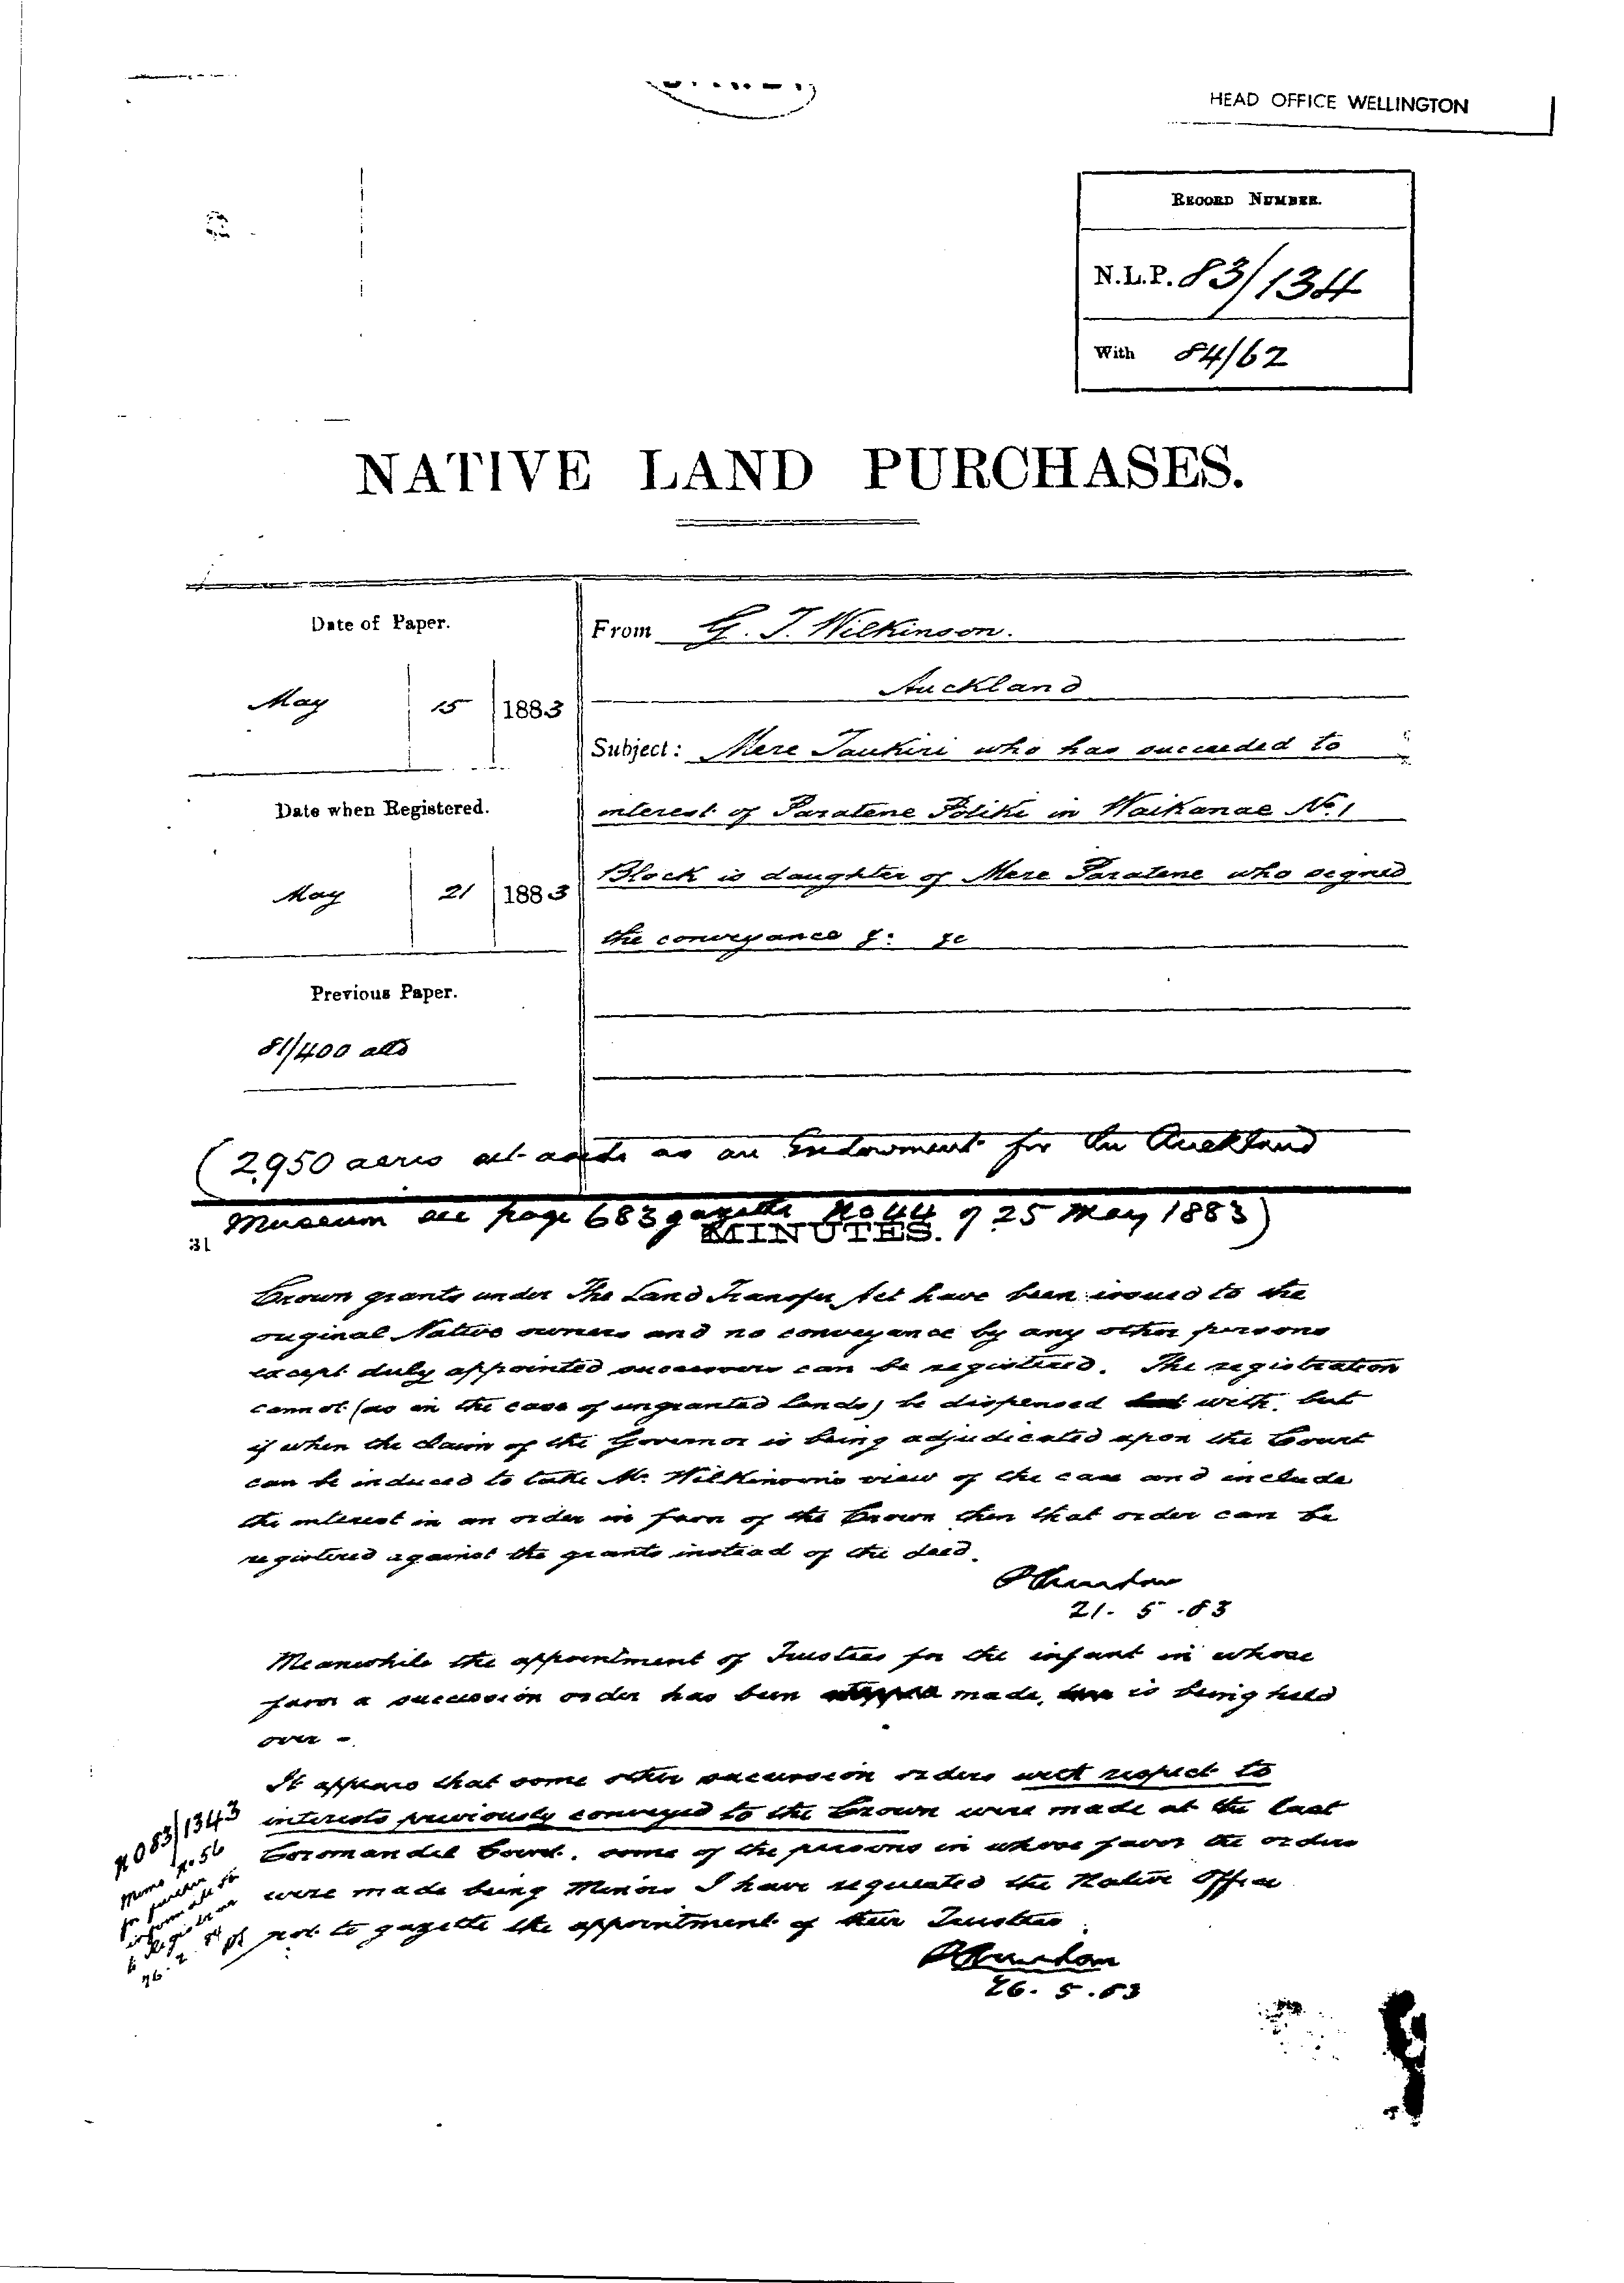 HEAD OFFICE WELLINGTON
RECORD NUMBER.
N.L.P. 83/134
With 84/62
NATIVE LAND PURCHASES.
Date of Paper.
May 15 1883
Date when Registered.
May 21 1883
Previous Paper.
81/400 attd
From G. T. Wilkinson.
Auckland
Subject: Mere Taukiri who has succeeded to
interest of Paratene Potiki in Waikanae No. 1
Block is daughter of Mere Paratene who signed
the conveyance &c &c
(2,950 acres set aside as an Endowment for the Auckland
Museum see page 683 gazette No 44 of 25 May 1883)
31
MINUTES.
Crown grants under The Land Transfer Act have been issued to the
original Native owners and no conveyance by any other persons
except duly appointed successors can be registered. The registration
cannot (as in the case of ungranted lands) be dispensed with, but
if when the claim of the Governor is being adjudicated upon the Court
can be induced to take Mr. Wilkinson's view of the case and include
the interest in an order in favor of the Crown then that order can be
registered against the grants instead of the deed.
21. 5. 83
Meanwhile the appointment of Trustees for the infant in whose
favor a succession order has been made, is being held
over -
It appears that some other succession orders with respect to
interests previously conveyed to the Crown were made at the last
Coromandel Court. some of the persons in whose favor the orders
were made being Minors I have requested the Native Office
not to gazette the appointment of their Trustees.
26. 5. 83
NO 83/1343
Memo No. 56
for
information to
26. 2. 84